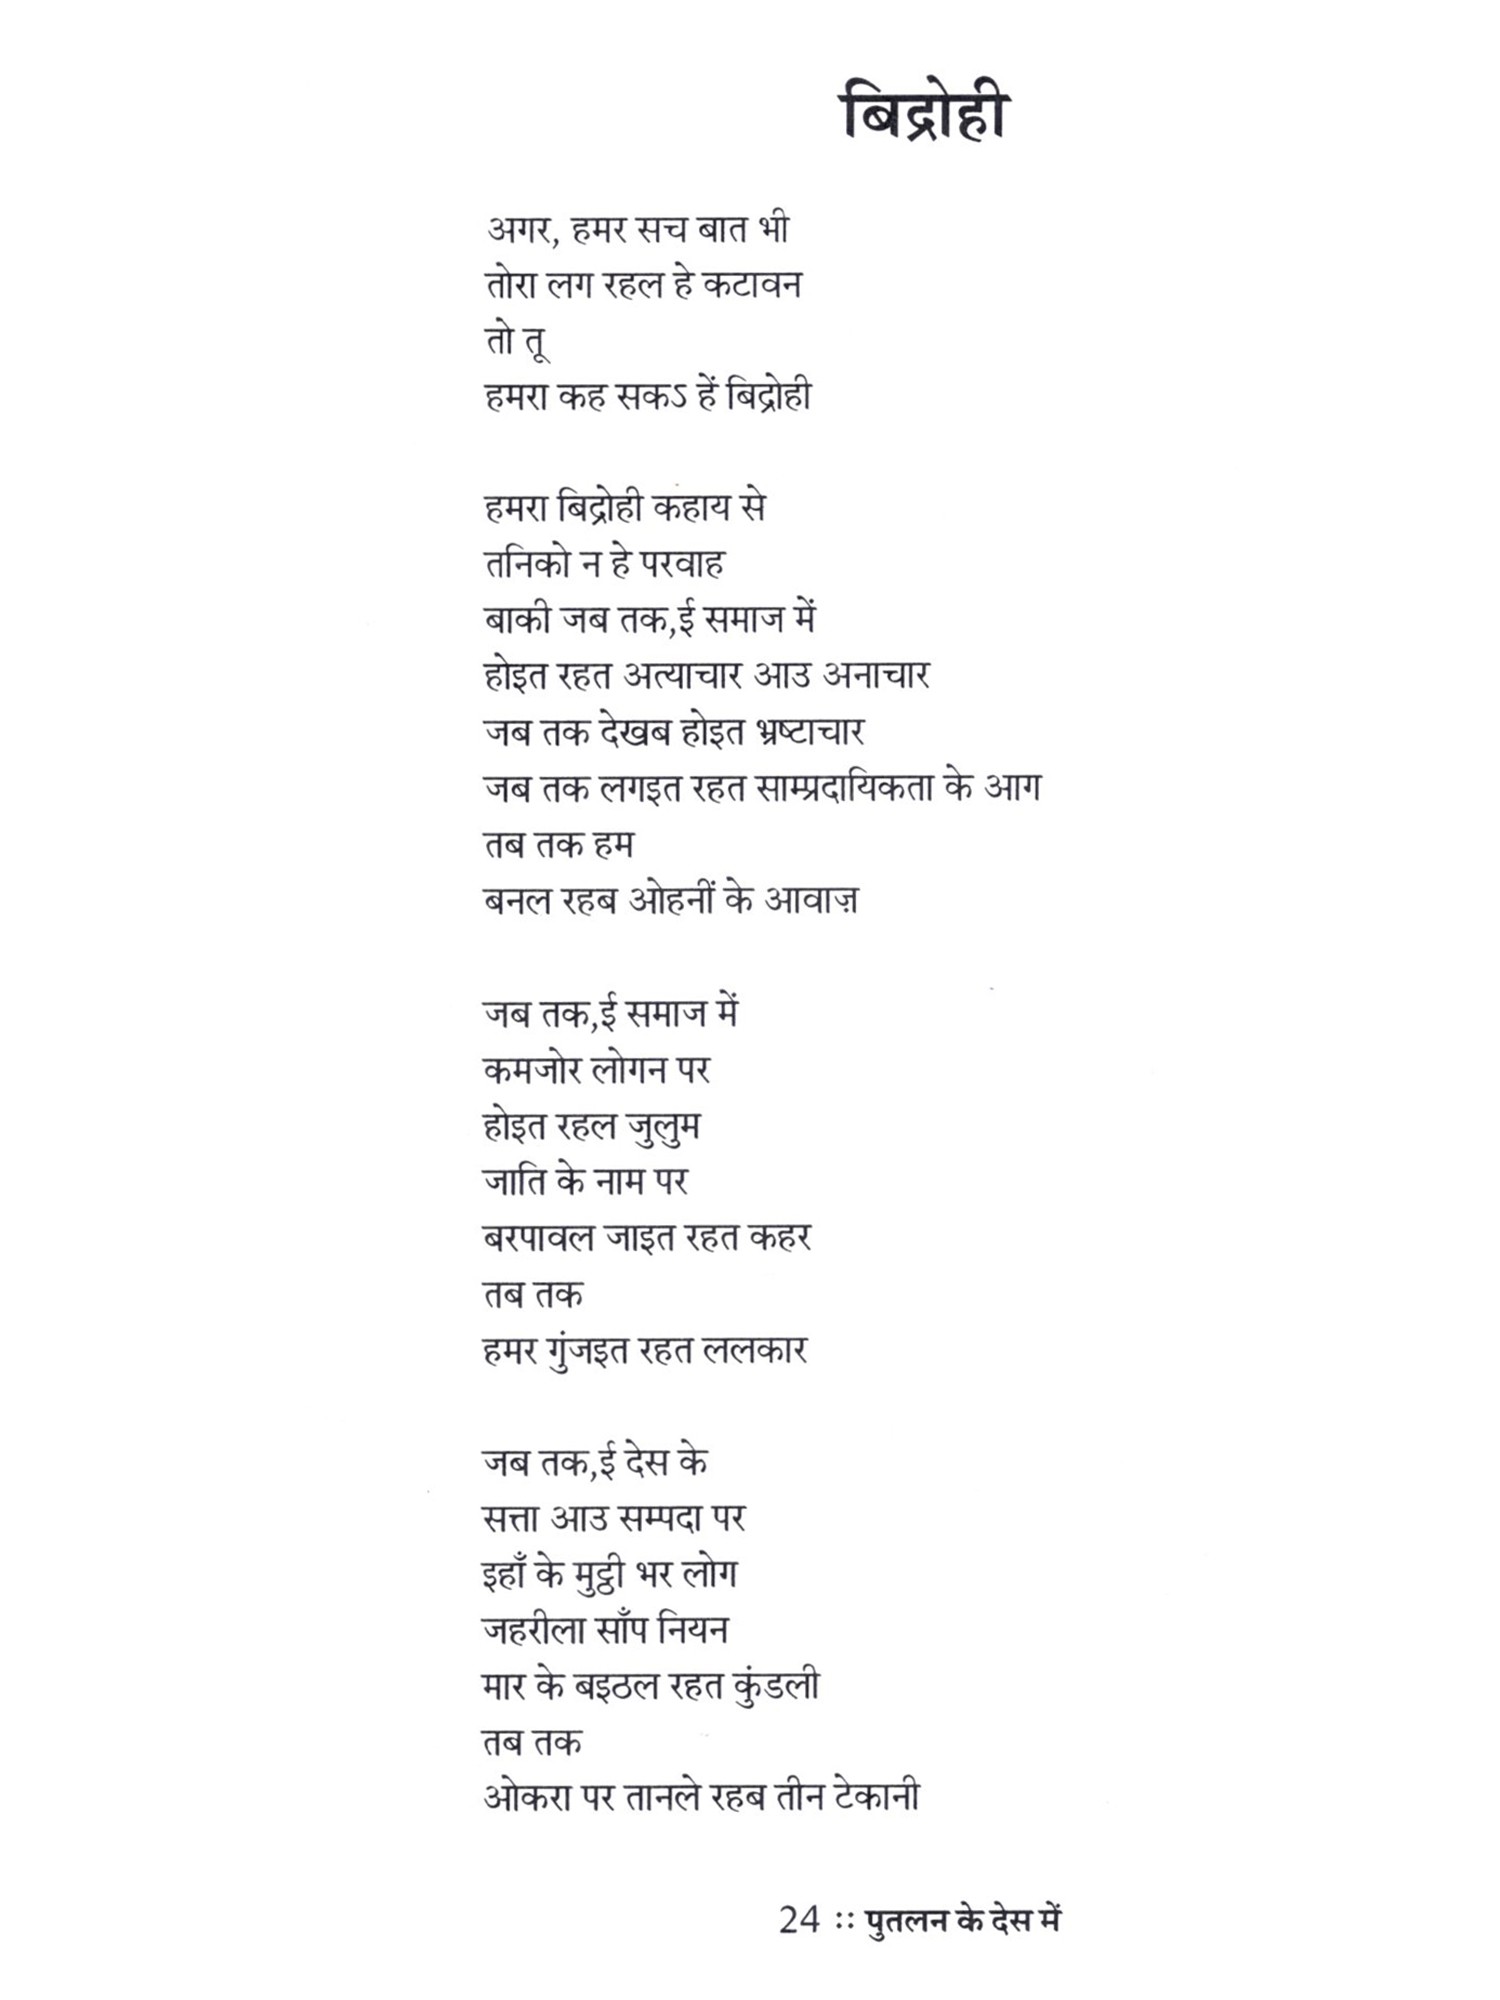 बिद्रोही
अगर, हमर सच बात भी
तोरा लग रहल हे कटावन
तो तू
हमरा कह सकऽ हें बिद्रोही
हमरा बिद्रोही कहाय से
तनिको न हे परवाह
बाकी जब तक,ई समाज में
होइत रहत अत्याचार आउ अनाचार
जब तक देखब होइत भ्रष्टाचार
जब तक लगइत रहत साम्प्रदायिकता के आग
तब तक हम
बनल रहब ओहनीं के आवाज़
जब तक,ई समाज में
कमजोर लोगन पर
होइत रहल जुलुम
जाति के नाम पर
बरपावल जाइत रहत कहर
तब तक
हमर गुंजइत रहत ललकार
जब तक,ई देस के
सत्ता आउ सम्पदा पर
इहाँ के मुट्ठी भर लोग
जहरीला साँप नियन
मार के बइठल रहत कुंडली
तब तक
ओकरा पर तानले रहब तीन टेकानी
24 :: पुतलन के देस में